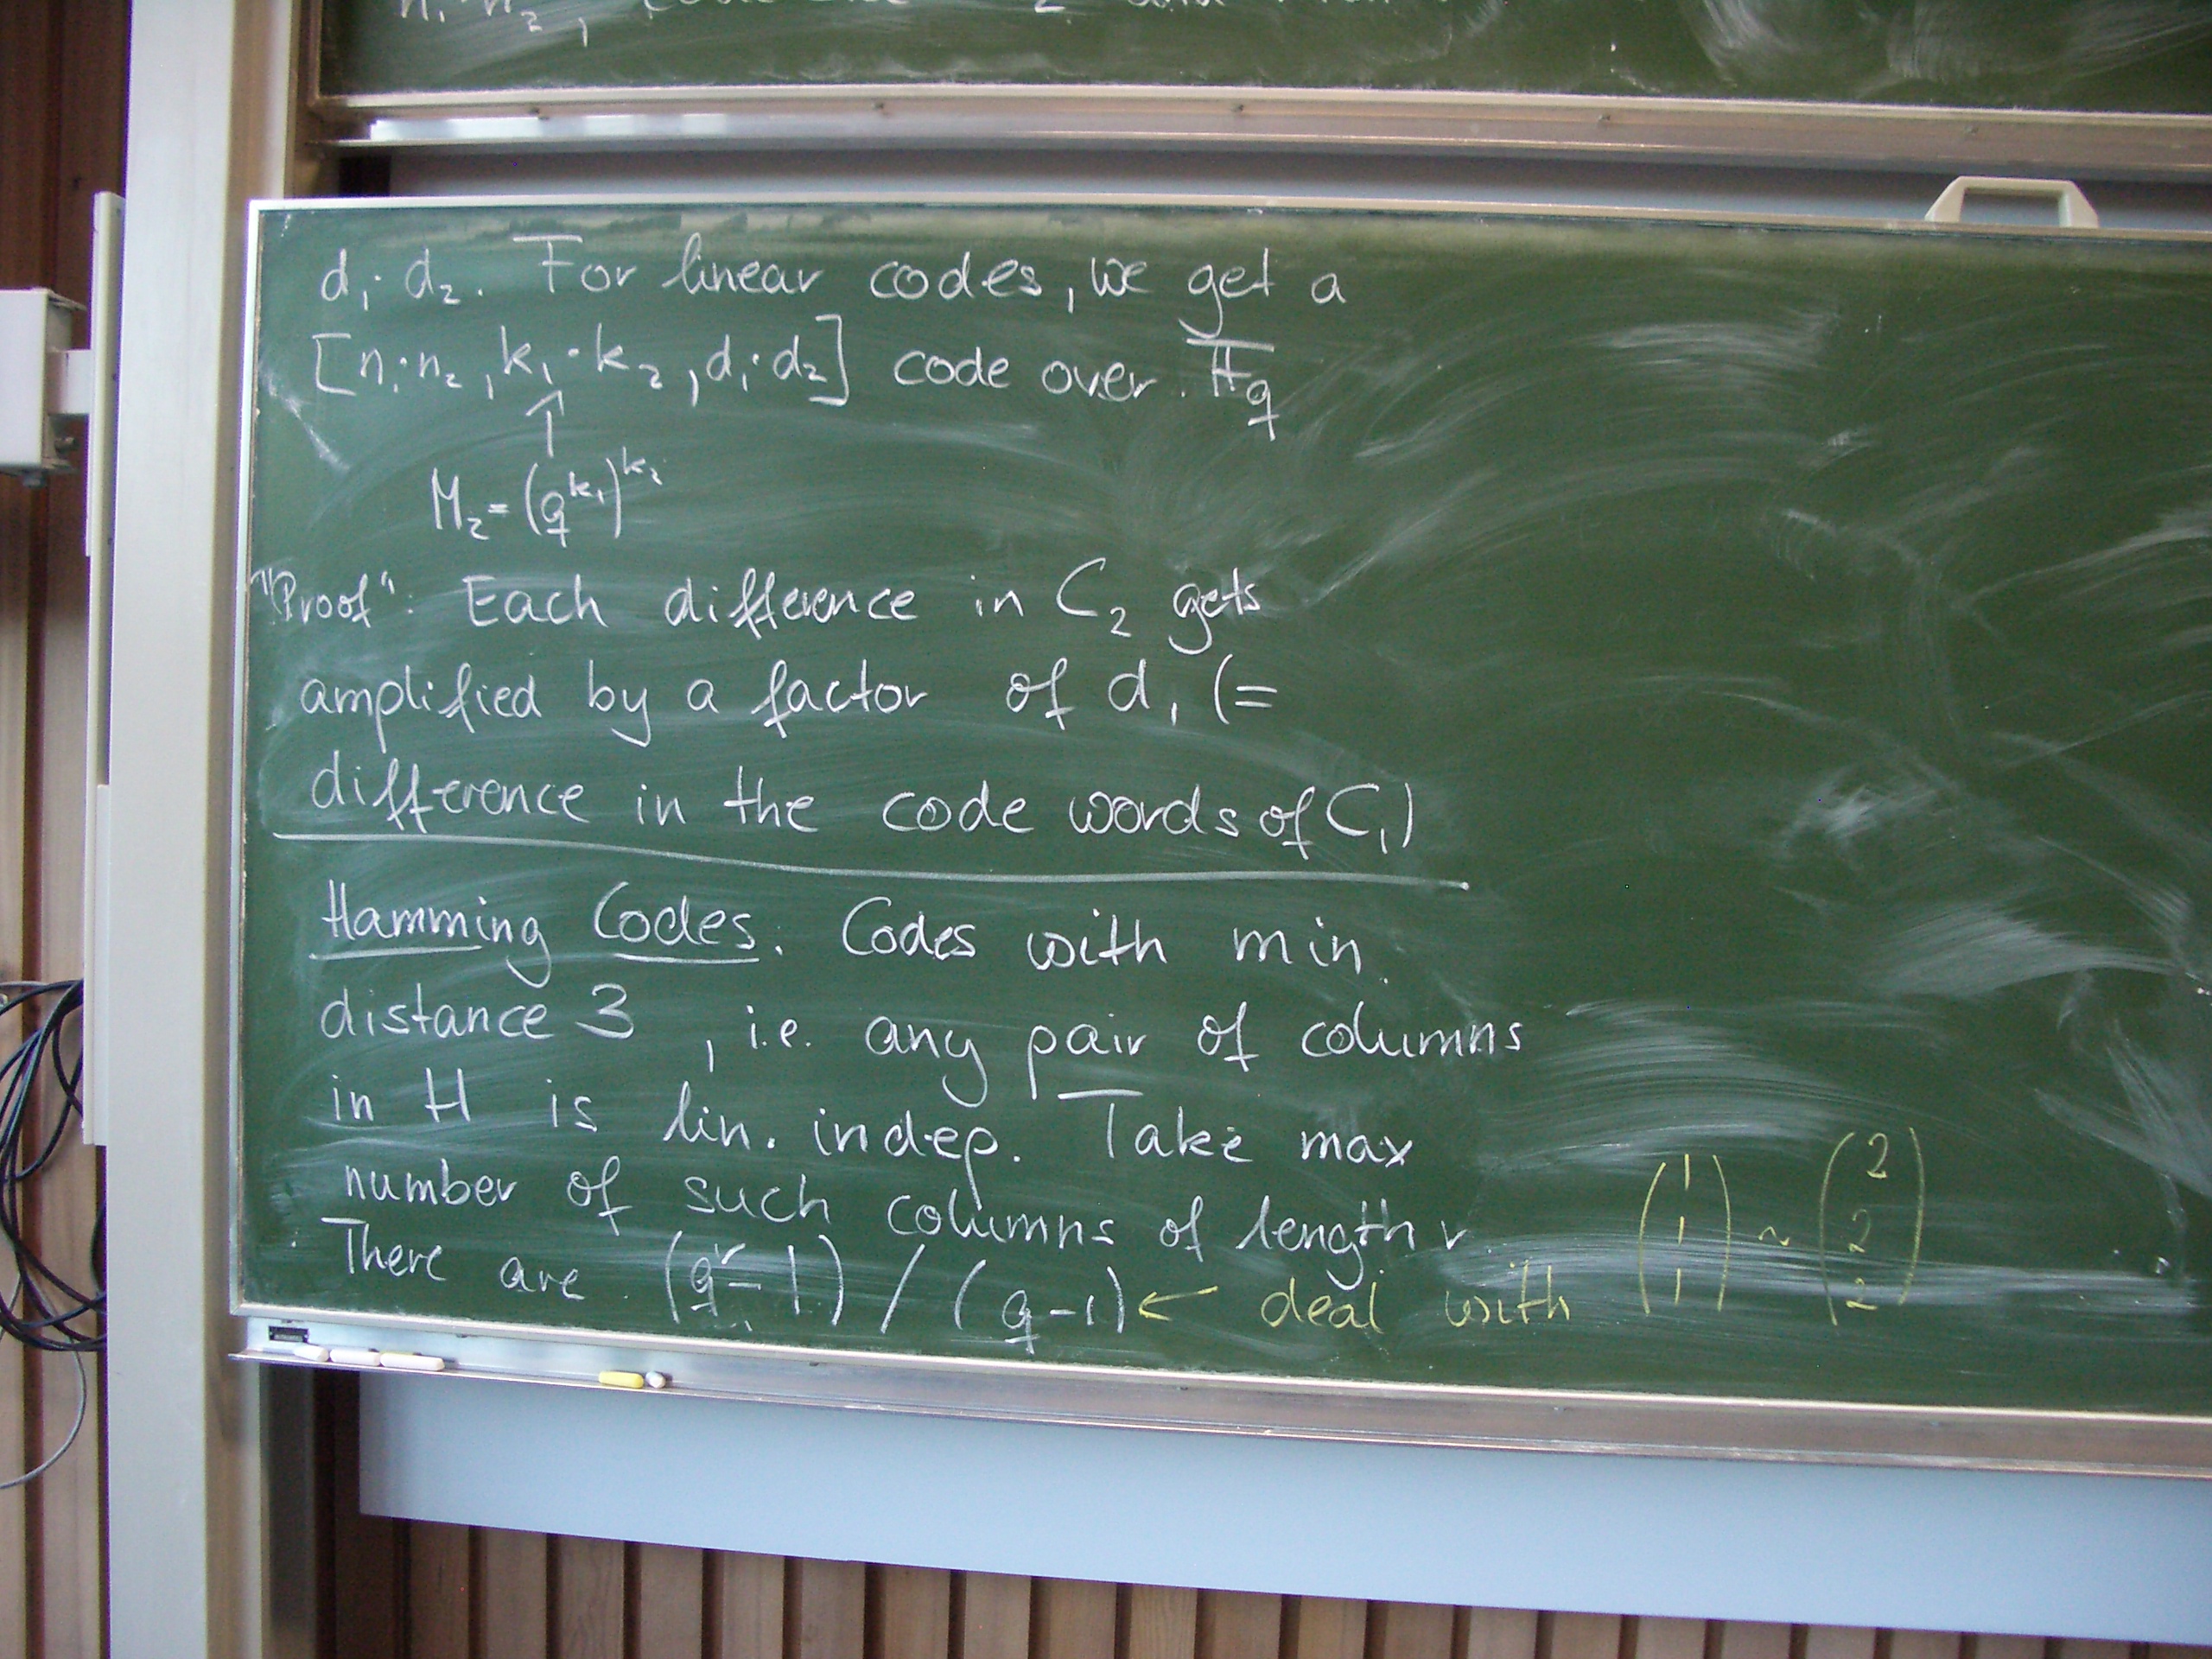 n₁ n₂,
d₁·d₂. For linear codes, we get a
[n₁·n₂, k₁·k₂, d₁·d₂] code over F_q
↑
M₂=(q^k₁)^k₂
"Proof": Each difference in C₂ gets
amplified by a factor of d₁ (=
difference in the code words of C₁)
Hamming Codes. Codes with min.
distance 3, i.e. any pair of columns
in H is lin. indep. Take max
number of such columns of length r
There are (q^r-1)/(q-1) ← deal with (1 1 1) ~ (2 2 2)